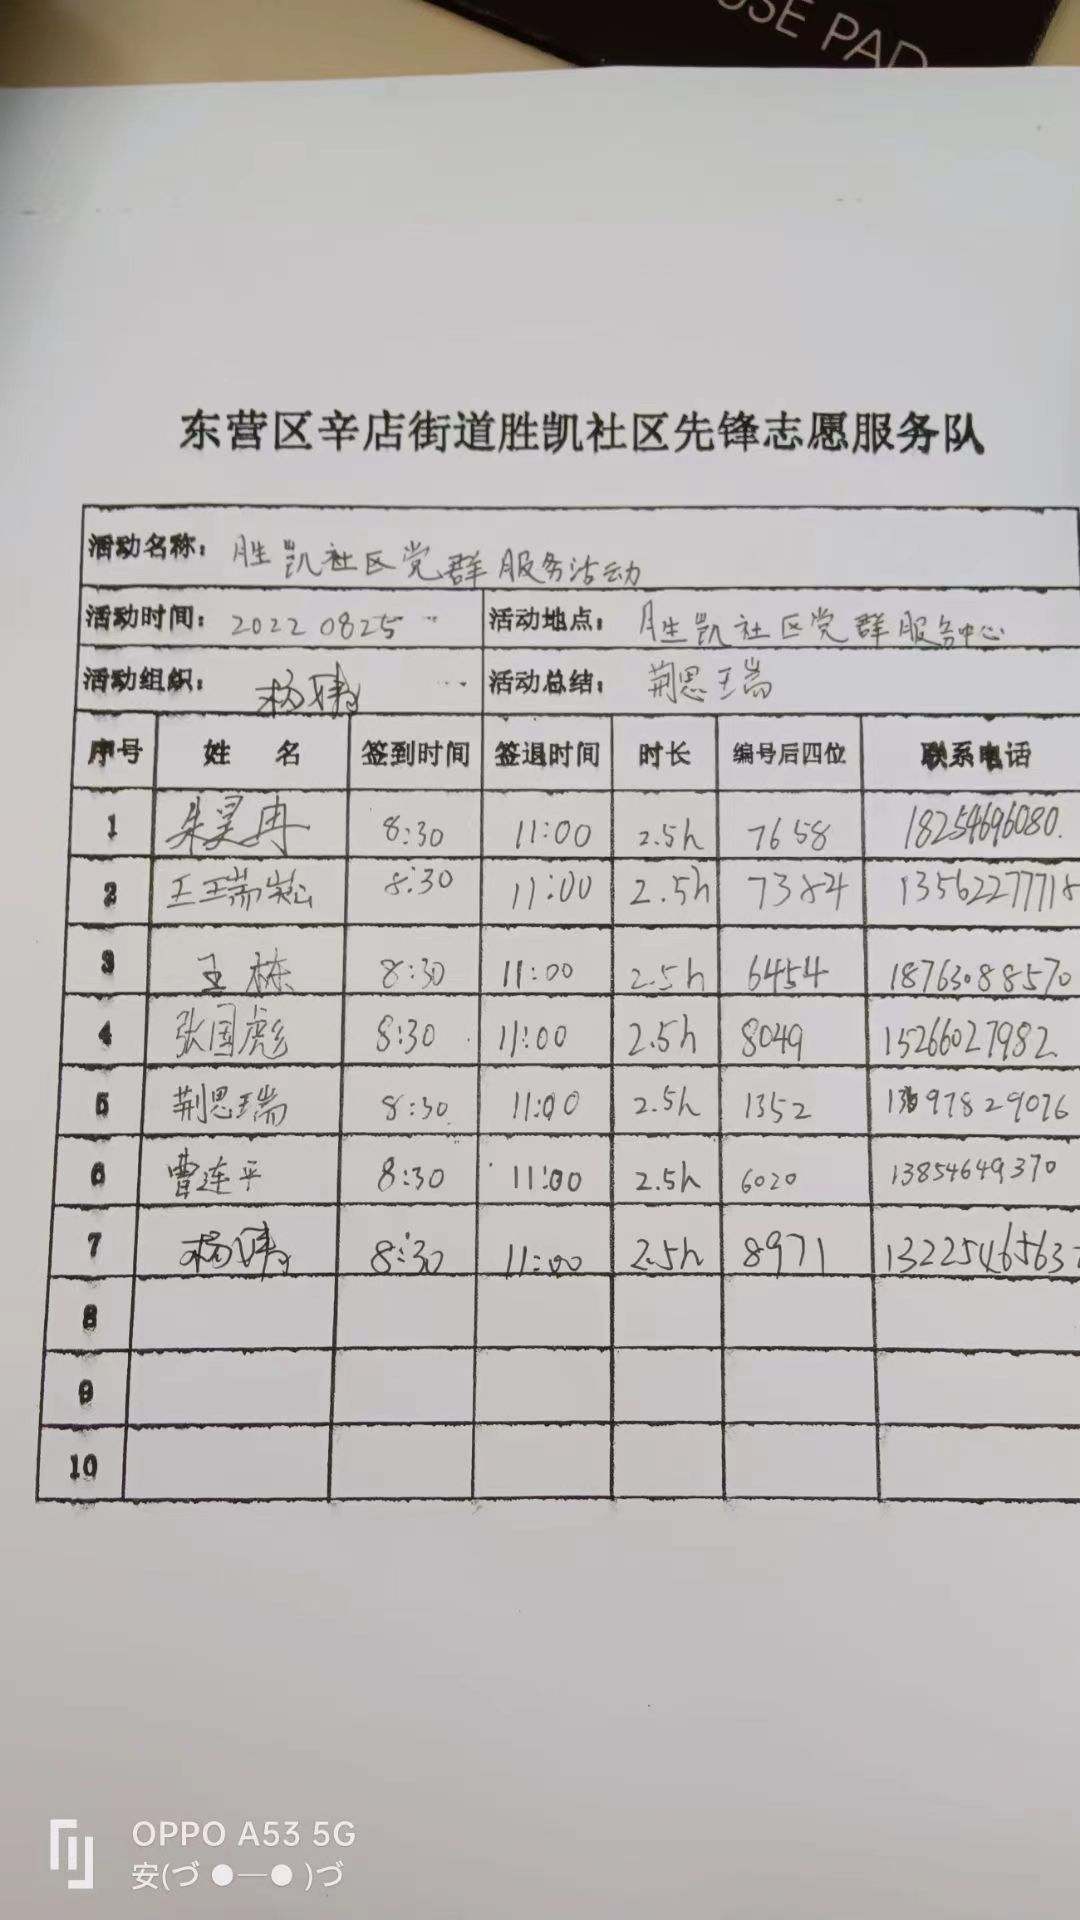 USE PAD
东营区辛店街道胜凯社区先锋志愿服务队
活动名称： 胜凯社区党群服务活动
活动时间： 20220825 活动地点： 胜凯社区党群服务中心
活动组织： 杨 活动总结： 荆思瑞
序号 姓 名 签到时间 签退时间 时长 编号后四位 联系电话
1 朱昊冉 8:30 11:00 2.5h 7658 18254696080.
2 王瑞崧 8:30 11:00 2.5h 7384 13562277718
3 王栋 8:30 11:00 2.5h 6454 18763088570
4 张国彪 8:30 11:00 2.5h 8049 15266027982
5 荆思瑞 8:30 11:00 2.5h 1352
6 曹连平 8:30 11:00 2.5h 6020 13854649370
7 杨 8:30 11:00 2.5h 8971 1322546563
8
9
10
OPPO A53 5G
安(づ ●—● )づ